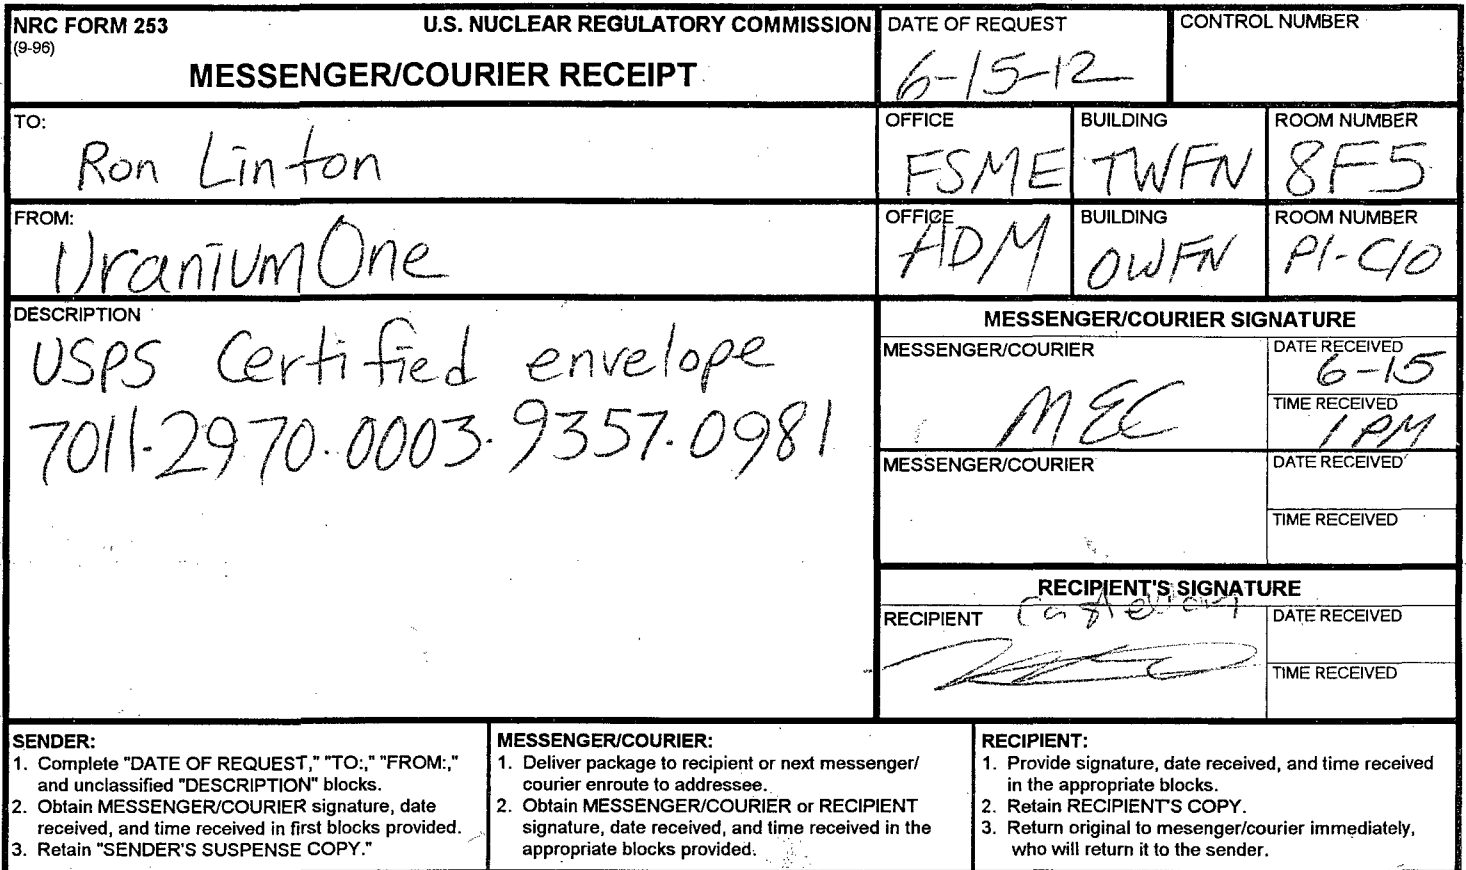 NRC FORM 253
(9-96)
U.S. NUCLEAR REGULATORY COMMISSION
MESSENGER/COURIER RECEIPT
DATE OF REQUEST
6-15-12
CONTROL NUMBER
TO:
Ron Linton
OFFICE
FSME
BUILDING
TWFN
ROOM NUMBER
8F5
FROM:
Uranium One
OFFICE
ADM
BUILDING
OWFN
ROOM NUMBER
P1-C10
DESCRIPTION
USPS Certified envelope
7011-2970.0003.9357.0981
MESSENGER/COURIER SIGNATURE
MESSENGER/COURIER
MEC
DATE RECEIVED
6-15
TIME RECEIVED
1 PM
MESSENGER/COURIER
DATE RECEIVED
TIME RECEIVED
RECIPIENT'S SIGNATURE
RECIPIENT
DATE RECEIVED
TIME RECEIVED
SENDER:
1. Complete "DATE OF REQUEST," "TO:," "FROM:,"
and unclassified "DESCRIPTION" blocks.
2. Obtain MESSENGER/COURIER signature, date
received, and time received in first blocks provided.
3. Retain "SENDER'S SUSPENSE COPY."
MESSENGER/COURIER:
1. Deliver package to recipient or next messenger/
courier enroute to addressee.
2. Obtain MESSENGER/COURIER or RECIPIENT
signature, date received, and time received in the
appropriate blocks provided.
RECIPIENT:
1. Provide signature, date received, and time received
in the appropriate blocks.
2. Retain RECIPIENT'S COPY.
3. Return original to mesenger/courier immediately,
who will return it to the sender.